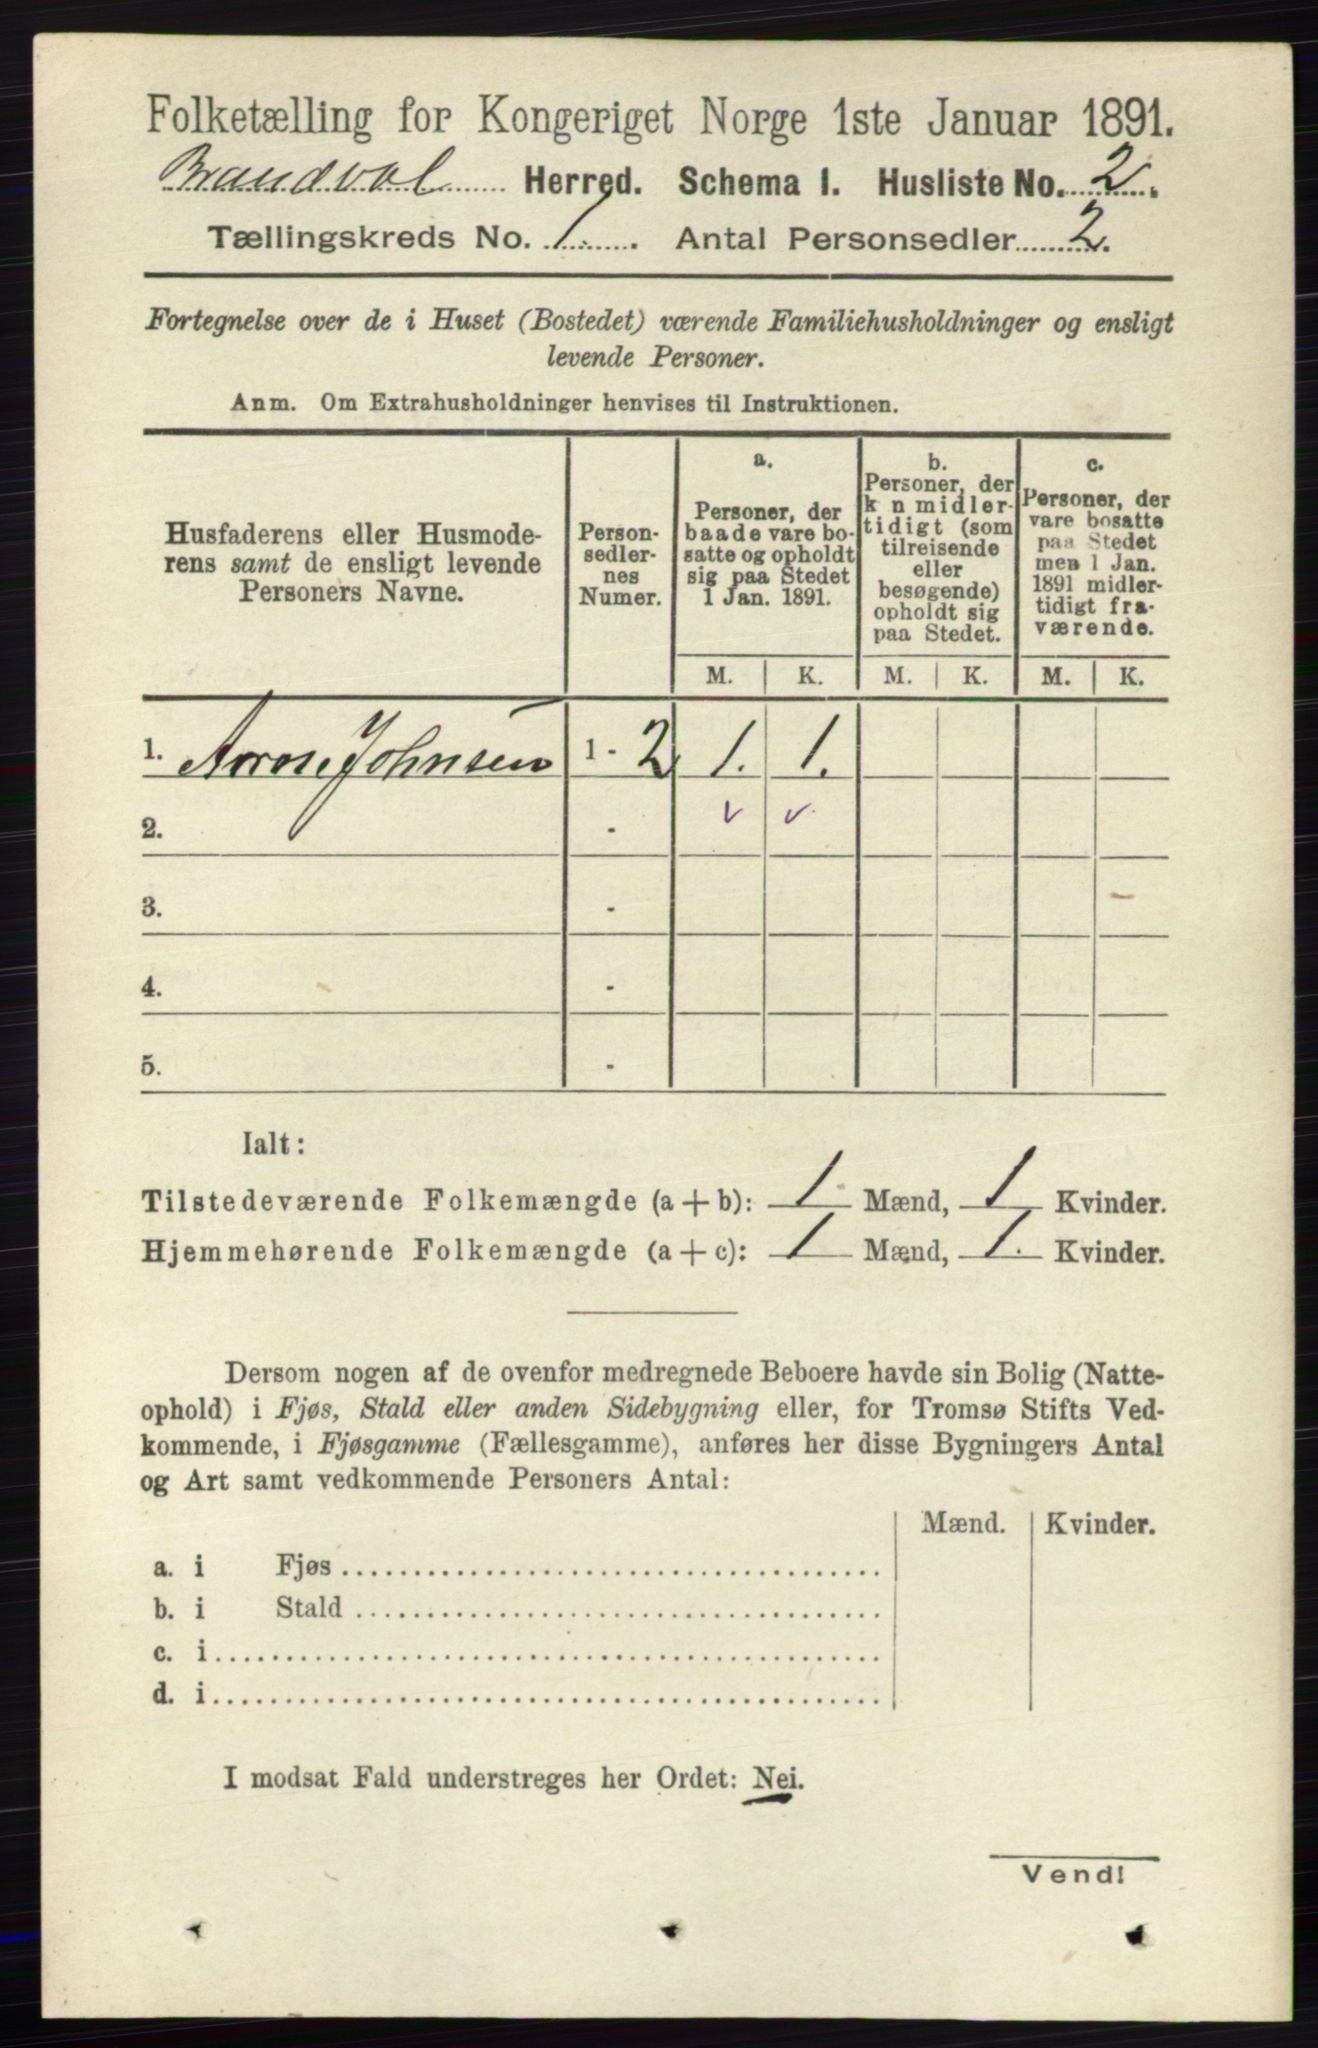 Folketælling for Kongeriget Norge 1ste Januar 1891.
Brandval Herred. Schema I. Husliste No. 2.
Tællingskreds No. 1. Antal Personsedler 2.
Fortegnelse over de i Huset (Bostedet) værende Familiehusholdninger og ensligt
levende Personer.
Anm. Om Extrahusholdninger henvises til Instruktionen.
Husfaderens eller Husmode-
rens samt de ensligt levende
Personers Navne.
Person-
sedler-
nes
Numer.
a.
Personer, der
baade vare bo-
satte og opholdt
sig paa Stedet
1 Jan. 1891.
b.
Personer, der
k n midler-
tidigt (som
tilreisende
eller
besøgende)
opholdt sig
paa Stedet.
c.
Personer, der
vare bosatte
paa Stedet
men 1 Jan.
1891 midler-
tidigt fra-
værende.
M. K. M. K. M. K.
1. Johnsen 1 - 2 1. 1.
2. -
3. -
4. -
5. -
Ialt:
Tilstedeværende Folkemængde (a + b): 1 Mænd, 1 Kvinder.
Hjemmehørende Folkemængde (a + c): 1 Mænd, 1. Kvinder.
Dersom nogen af de ovenfor medregnede Beboere havde sin Bolig (Natte-
ophold) i Fjøs, Stald eller anden Sidebygning eller, for Tromsø Stifts Ved-
kommende, i Fjøsgamme (Fællesgamme), anføres her disse Bygningers Antal
og Art samt vedkommende Personers Antal:
Mænd. Kvinder.
a. i Fjøs
b. i Stald
c. i
d. i
I modsat Fald understreges her Ordet: Nei.
Vend!